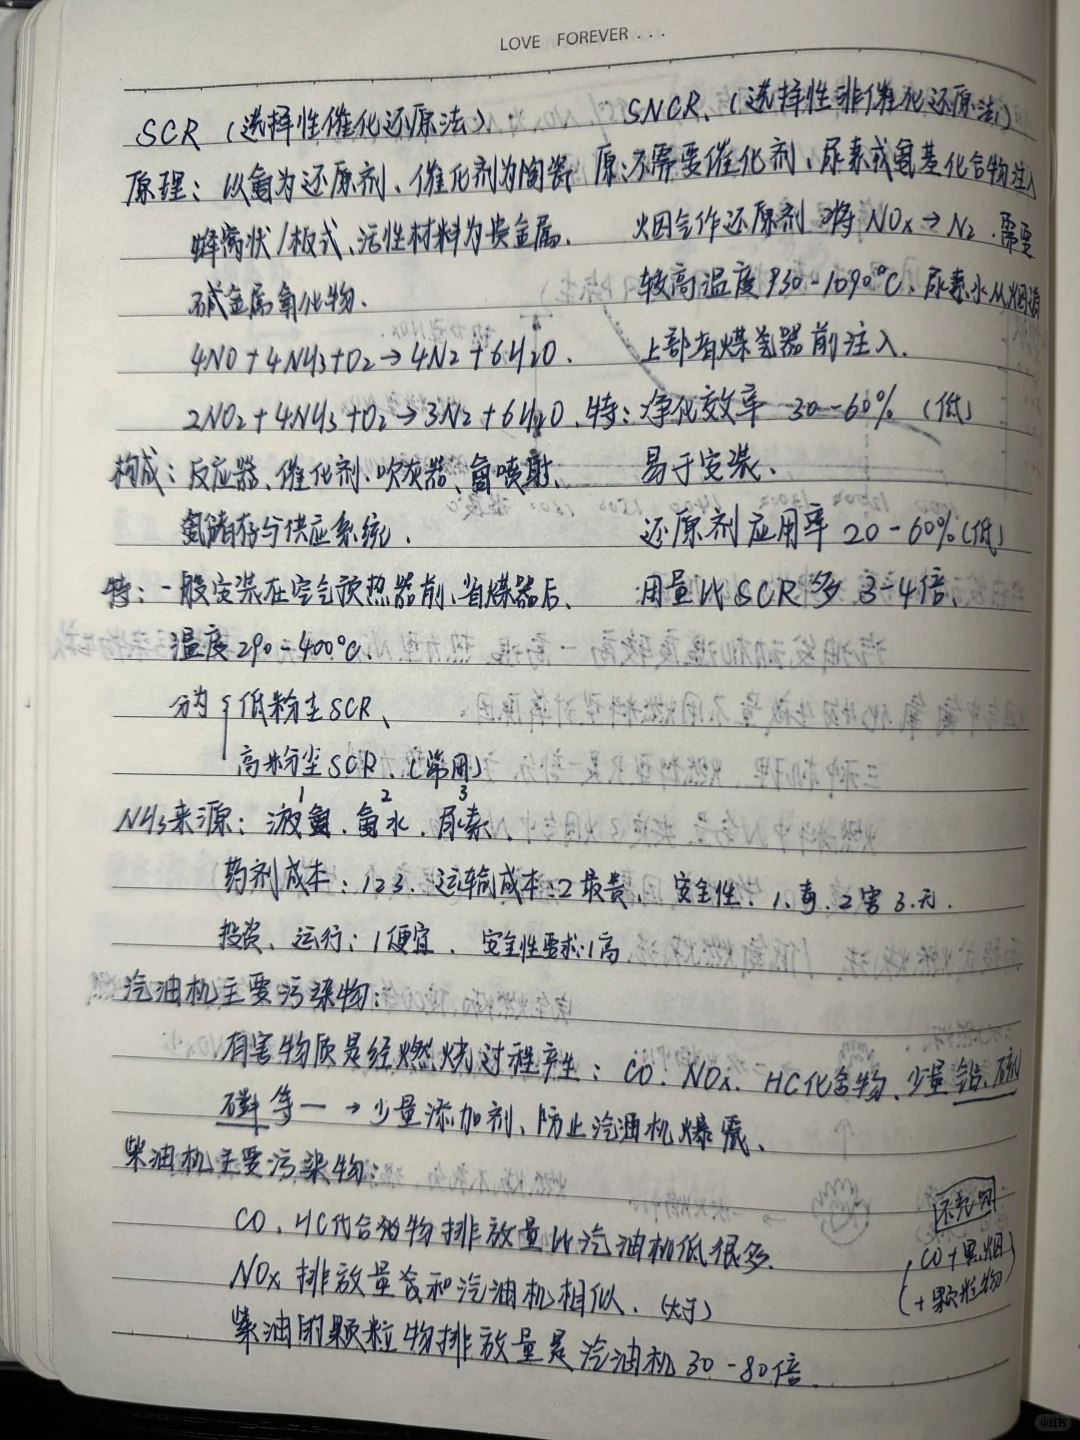 LOVE FOREVER . . .
SCR（选择性催化还原法）
原理：以氨为还原剂、催化剂为陶瓷
蜂窝状/板式、活性材料为贵金属、
碱金属氧化物.
4NO+4NH3+O2→4N2+6H2O.
2NO2+4NH3+O2→3N2+6H2O.
构成：反应器、催化剂、吹灰器、氨喷射、
氨储存与供应系统.
特：一般安装在空气预热器前、省煤器后、
温度290-400°C.
分为{低粉尘SCR、
高粉尘SCR.（常用）
SNCR.（选择性非催化还原法）
原:不需要催化剂、尿素或氨基化合物注入
烟气作还原剂 将NOx→N2.需要
较高温度930-1090°C.尿素水从烟道
上部省煤器前注入.
特：净化效率 30-60%（低）
易于安装、
还原剂应用率20-60%(低)
用量比SCR多 3-4倍、
1 2 3
NH3来源：液氨、氨水、尿素、
药剂成本：123.运输成本:2最贵、安全性：1.毒.2害3.无.
投资、运行：1便宜.安全性要求:1高
汽油机主要污染物：
有害物质是经燃烧过程产生：CO、NOx、HC化合物、少量铅、硫
磷等一→少量添加剂、防止汽油机爆震、
柴油机主要污染物：
CO、HC化合物排放量比汽油机低很多.
NOx排放量和汽油机相似.（大于）
柴油的颗粒物排放量是汽油机30-80倍.
(CO+黑烟
+颗粒物)
小红书